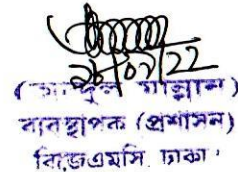 (আব্দুল মান্নান)
ব্যবস্থাপক (প্রশাসন)
বিজেএমসি, ঢাকা।